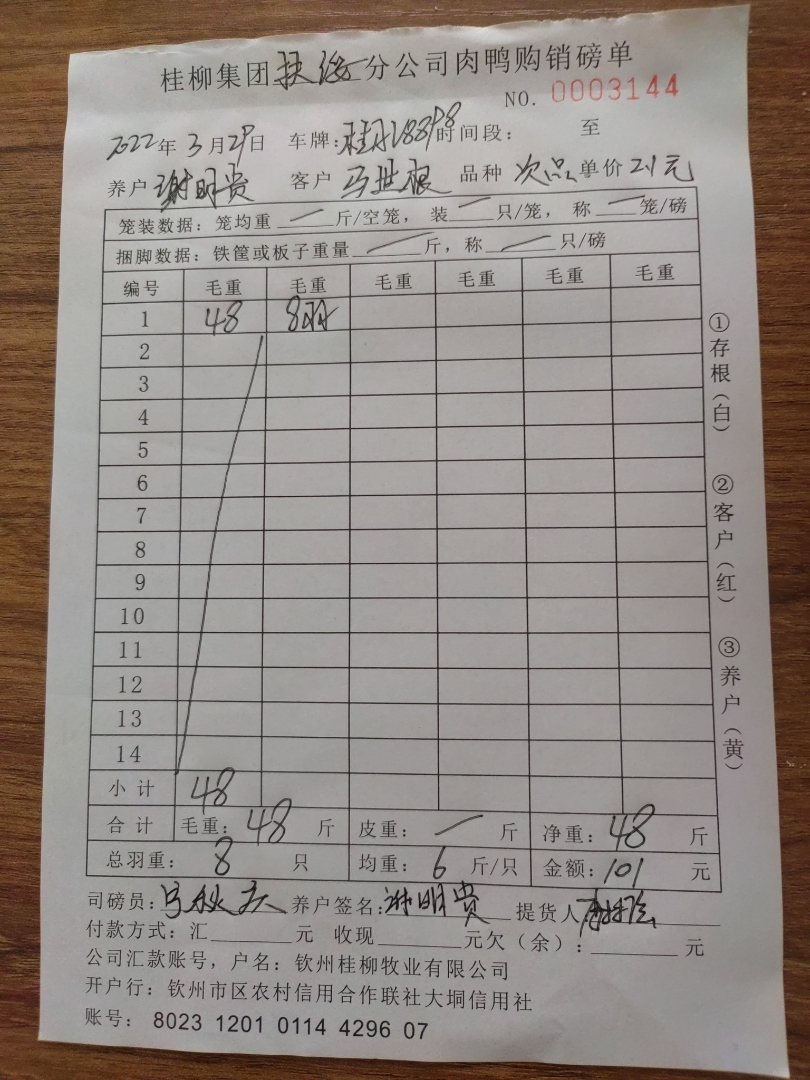 桂柳集团扶绥分公司肉鸭购销磅单
NO. 0003144
2022年3月29日 车牌: 时间段: 至
养户 谢明贵 客户 马世根 品种 次品 单价 2.1元
笼装数据: 笼均重 一 斤/空笼, 装 一 只/笼, 称 一 笼/磅
捆脚数据: 铁筐或板子重量 一 斤, 称 一 只/磅
编号 毛重 毛重 毛重 毛重 毛重 毛重
1 48 8羽
2
3
4
5
6
7
8
9
10
11
12
13
14
小计 48
合计 毛重: 48 斤 皮重: 一 斤 净重: 48 斤
总羽重: 8 只 均重: 6 斤/只 金额: 101 元
司磅员: 养户签名: 谢明贵 提货人
付款方式: 汇 元 收现 元欠(余): 元
公司汇款账号, 户名: 钦州桂柳牧业有限公司
开户行: 钦州市区农村信用合作联社大垌信用社
账号: 8023 1201 0114 4296 07
①存根(白)
②客户(红)
③养户(黄)